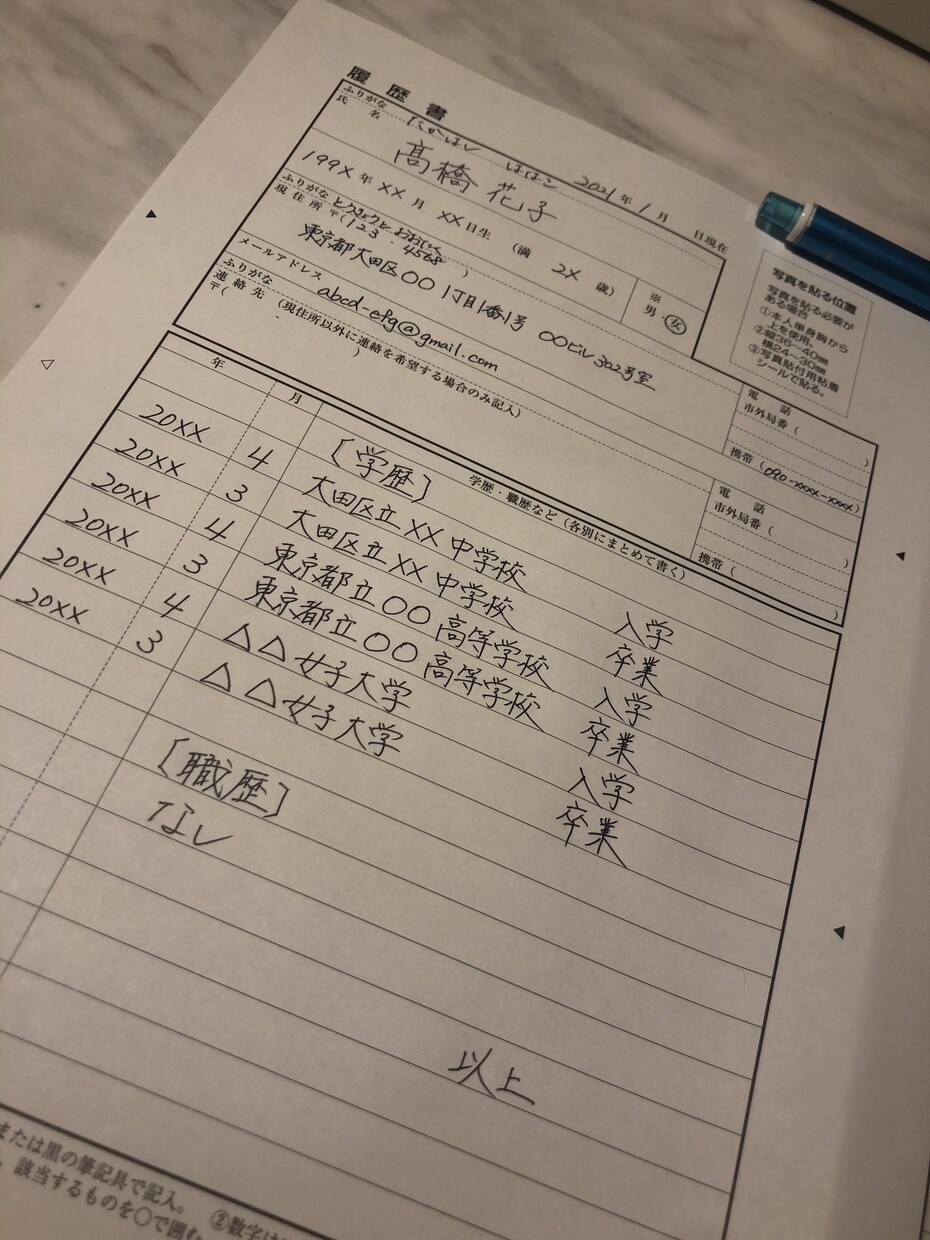 履歴書
2021年 1月 日現在
ふりがな たかはし はなこ
氏名 髙橋 花子
199X年 XX月 XX日生 (満 2X 歳)
※ 男・女
写真を貼る位置
写真を貼る必要が
ある場合
①本人単身胸から
上を使用。
②縦36~40㎜
横24~30㎜
③写真貼付用粘着
シールで貼る。
ふりがな とうきょうと おおたく
現住所 〒(123-4568)
東京都大田区○○ 1丁目1番1号 ○○ビル 302号室
電話
市外局番( )
携帯(090-xxxx-xxxx)
メールアドレス abcd-efg@gmail.com
ふりがな
連絡先 (現住所以外に連絡を希望する場合のみ記入)
〒( )
電話
市外局番( )
携帯( )
年 月 学歴・職歴など(各別にまとめて書く)
[学歴]
20XX 4 大田区立XX中学校 入学
20XX 3 大田区立XX中学校 卒業
20XX 4 東京都立○○高等学校 入学
20XX 3 東京都立○○高等学校 卒業
20XX 4 △△女子大学 入学
20XX 3 △△女子大学 卒業
[職歴]
なし
以上
または黒の筆記具で記入。 ②数字は
、該当するものを○で囲む